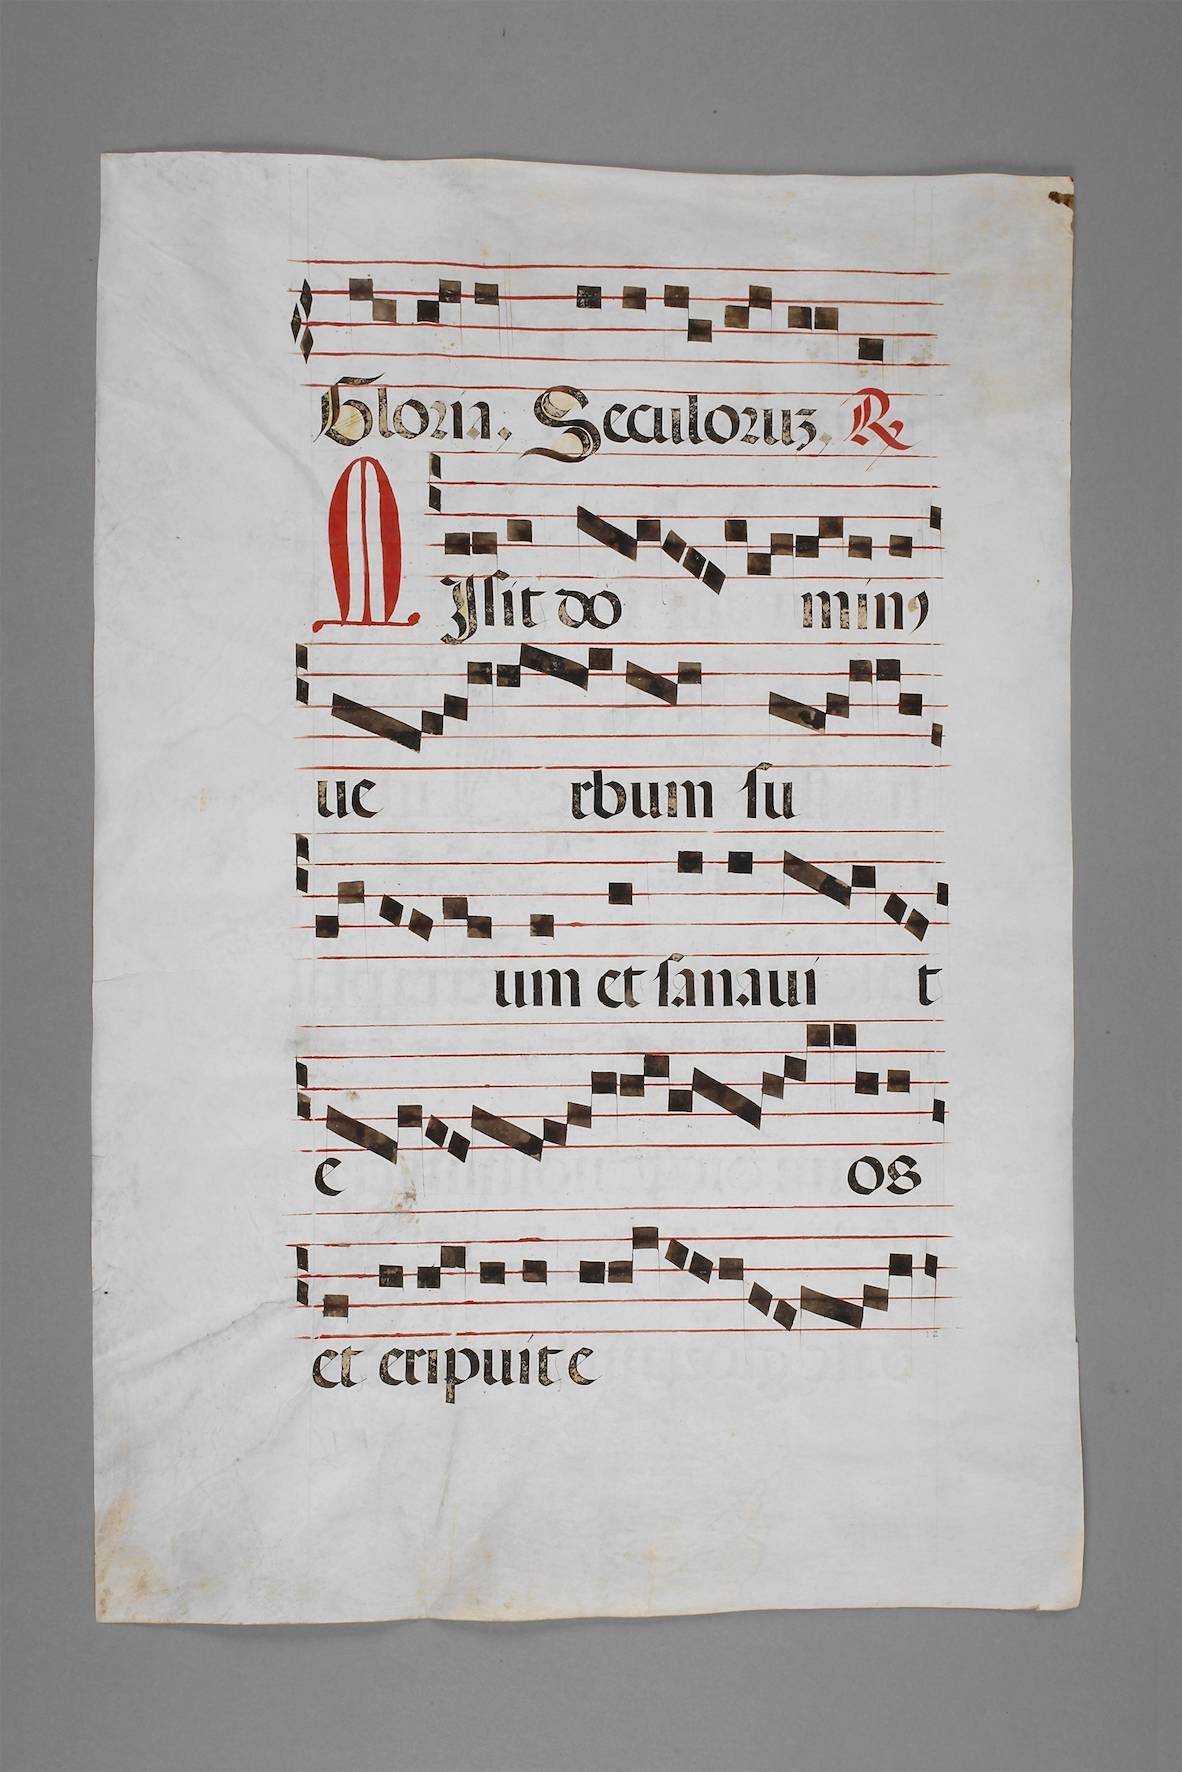 Gloria. Seculoruꝫ. ℟
MIſit do minꝯ
ue rbum ſu
um et ſanaui t
e os
et eripuit e